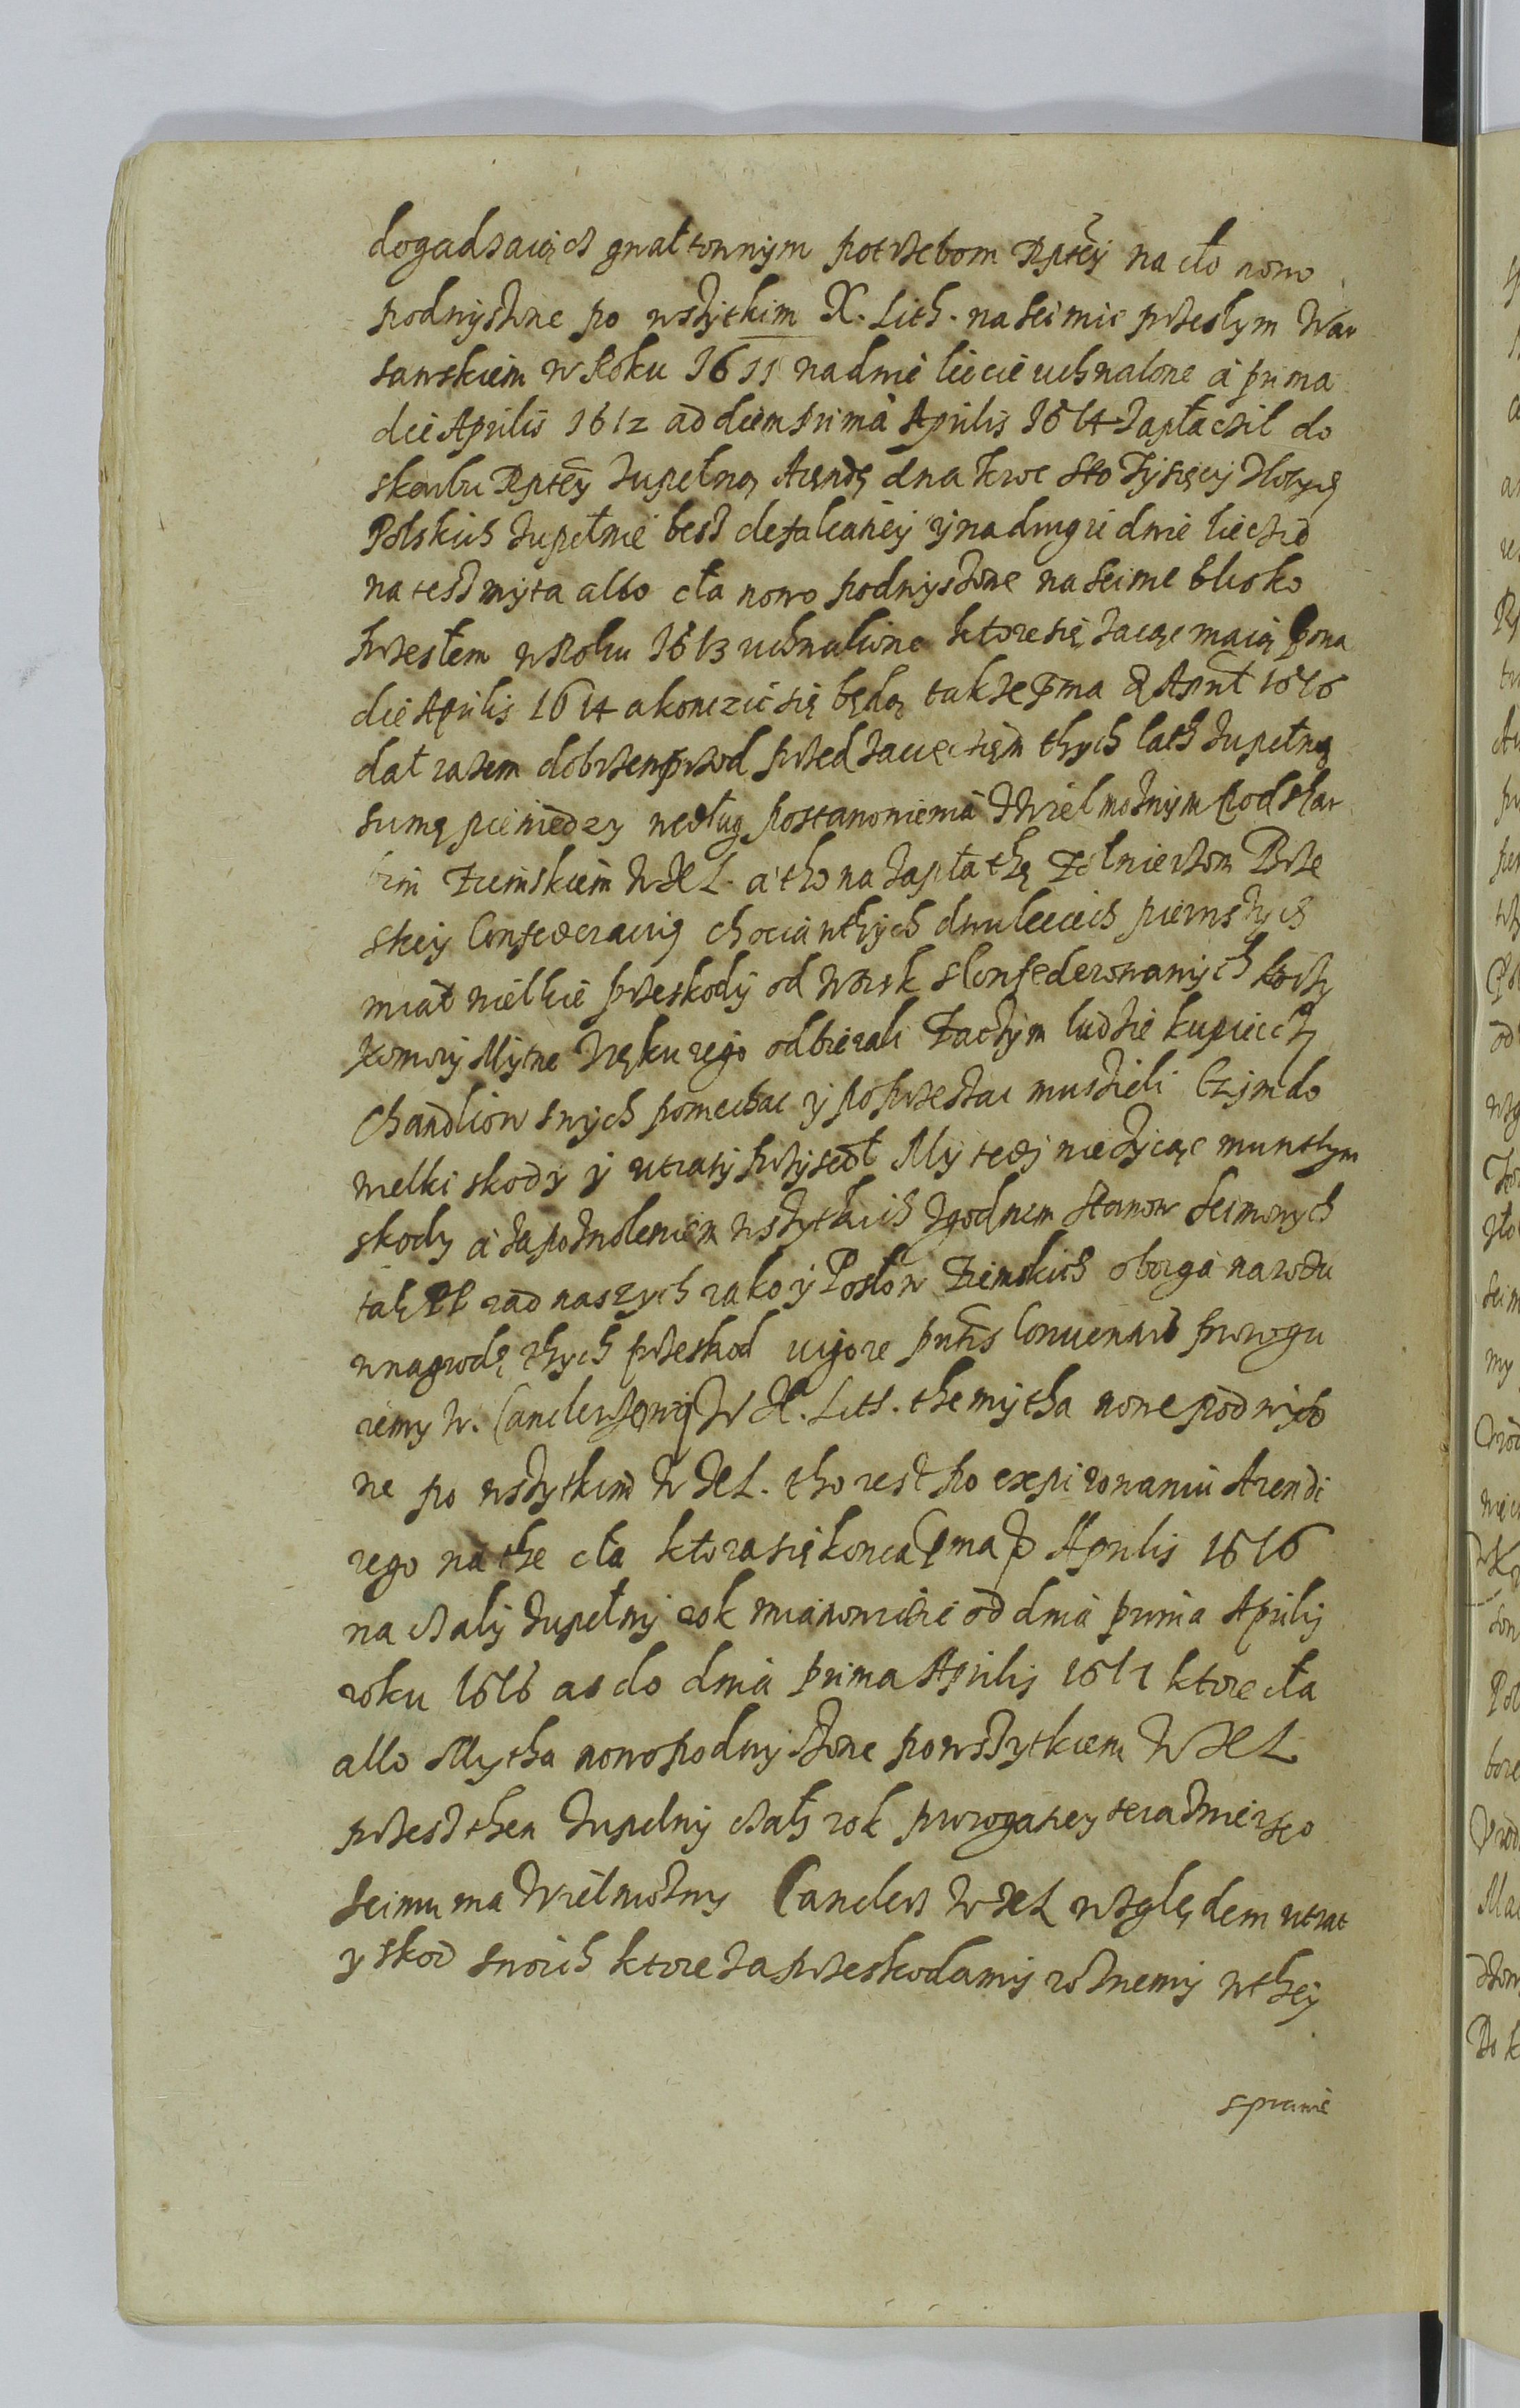 dogadzaiącz gwałtownym potrzebom Rptey na cło nowo
podwyszone po wszytkim X. Lith. na seimie przeslym War
sawskiem w Roku 1611 na dwie liecie uchwalone a prima
die Aprilis 1612 ad diem prima Aprilis 1614 zapłaczil do
skarbu Rptey zupełną Arendę dwakroc sto tysięcy złotych
Polskich zupełnie besz defalcatiey y na drugie dwie lieczie
na tesz myta albo cła nowo podwyszone na seime blisko
przesłem w Roku 1613 uchwalione ktore się zacząc maią pma
die Aprilis 1614 a konczic się będą takze pma Aprīl 1616
dał razem dobrze wprzod przed zaczęcięm thych lath zupełną
sumę pieniedzy według postanowienia z Wielmoznym Podskar
bim Ziemskiem WXL. a tho na zapłathę Zołnierzom Brze
skiey Confederatiy chocia wthych dwu leciech pierwszych
miał wielkie przeskody od woisk skonfederowanych ktorzy
Komory Mytne z ręku iego odbierali Zaczym ludzie kupieccy
Chandlow swych poniechac y poprzestac muszieli Czym do
wielki skody y utraty przysedł My tedy nie zycząc mu w thym
skody a za pozwoleniem wszytkich zgodnem stanow Seimowych
tak PP rad naszych iako y Posłow Ziemskich oboiga narodu
w nagrodę thych przeskod vigore pntis Conventus prorogu
iemy W. Canclerzowi WX. Lith. the mytha nowe podwyszo
ne po wszytkim WXL. tho iest po expirowaniu Arendi
iego na the cła ktora się konca pma Aprilis 1616
na czaly zupełny rok mianowicie od dnia prima Aprilis
roku 1616 as do dnia prima Aprilis 1617 ktore cła
albo Mytha nowo podwyszone po wszytkiem WXL
przesz then zupelny czały rok prorogatiey teraznieyszego
seimu ma Wielmozny Canclerz WXL względem utrat
y skod swoich ktore za przeskodamy roznemy wthey
sprawie